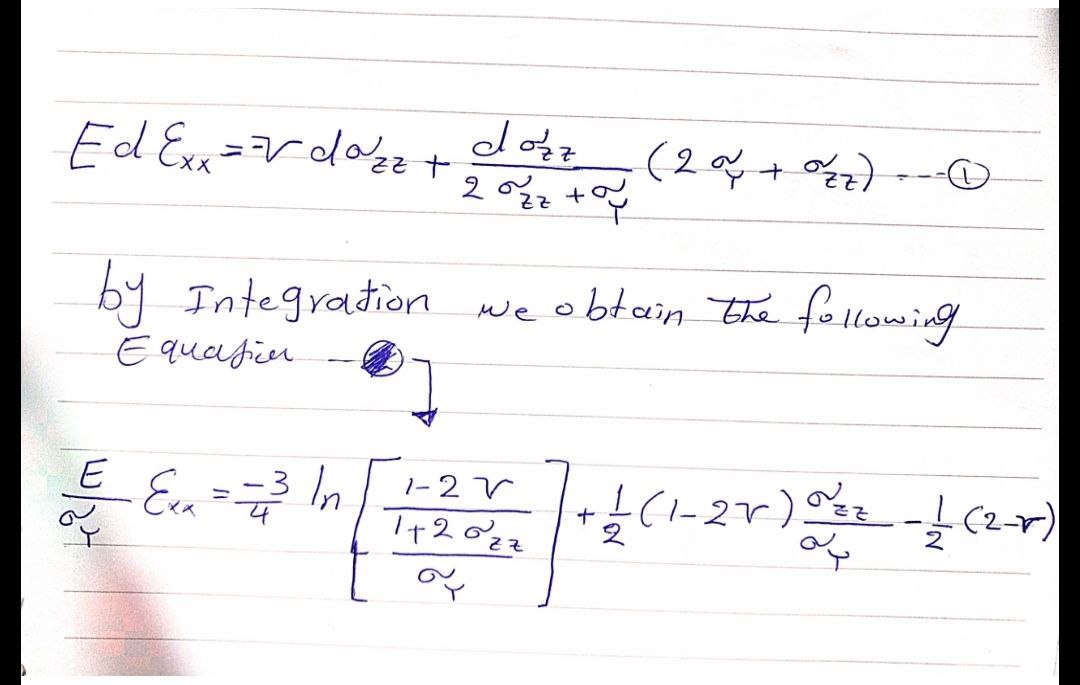 E dε_xx = -ν dσ_zz + dσ_zz / (2σ_zz + σ_Y) (2σ_Y + σ_zz) ---①
by Integration we obtain the following
Equation -
E/σ_Y ε_xx = -3/4 ln [(1-2ν) / ((1+2σ_zz)/σ_Y)] + 1/2 (1-2ν) σ_zz/σ_Y - 1/2 (2-ν)